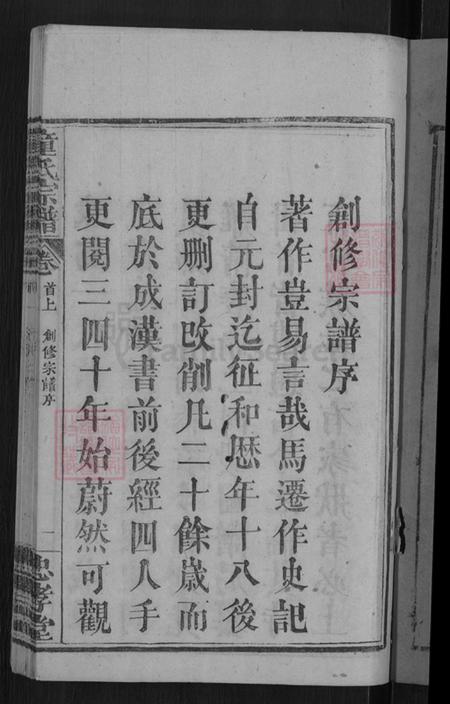 創修宗譜序
著作豈易言哉馬遷作史記
自元封迄征和歷年十八後
更刪訂改削凡二十餘歲而
底於成漢書前後經四人手
更閱三四十年始蔚然可觀
童氏宗譜 卷首上 創修宗譜序 一 忠孝堂